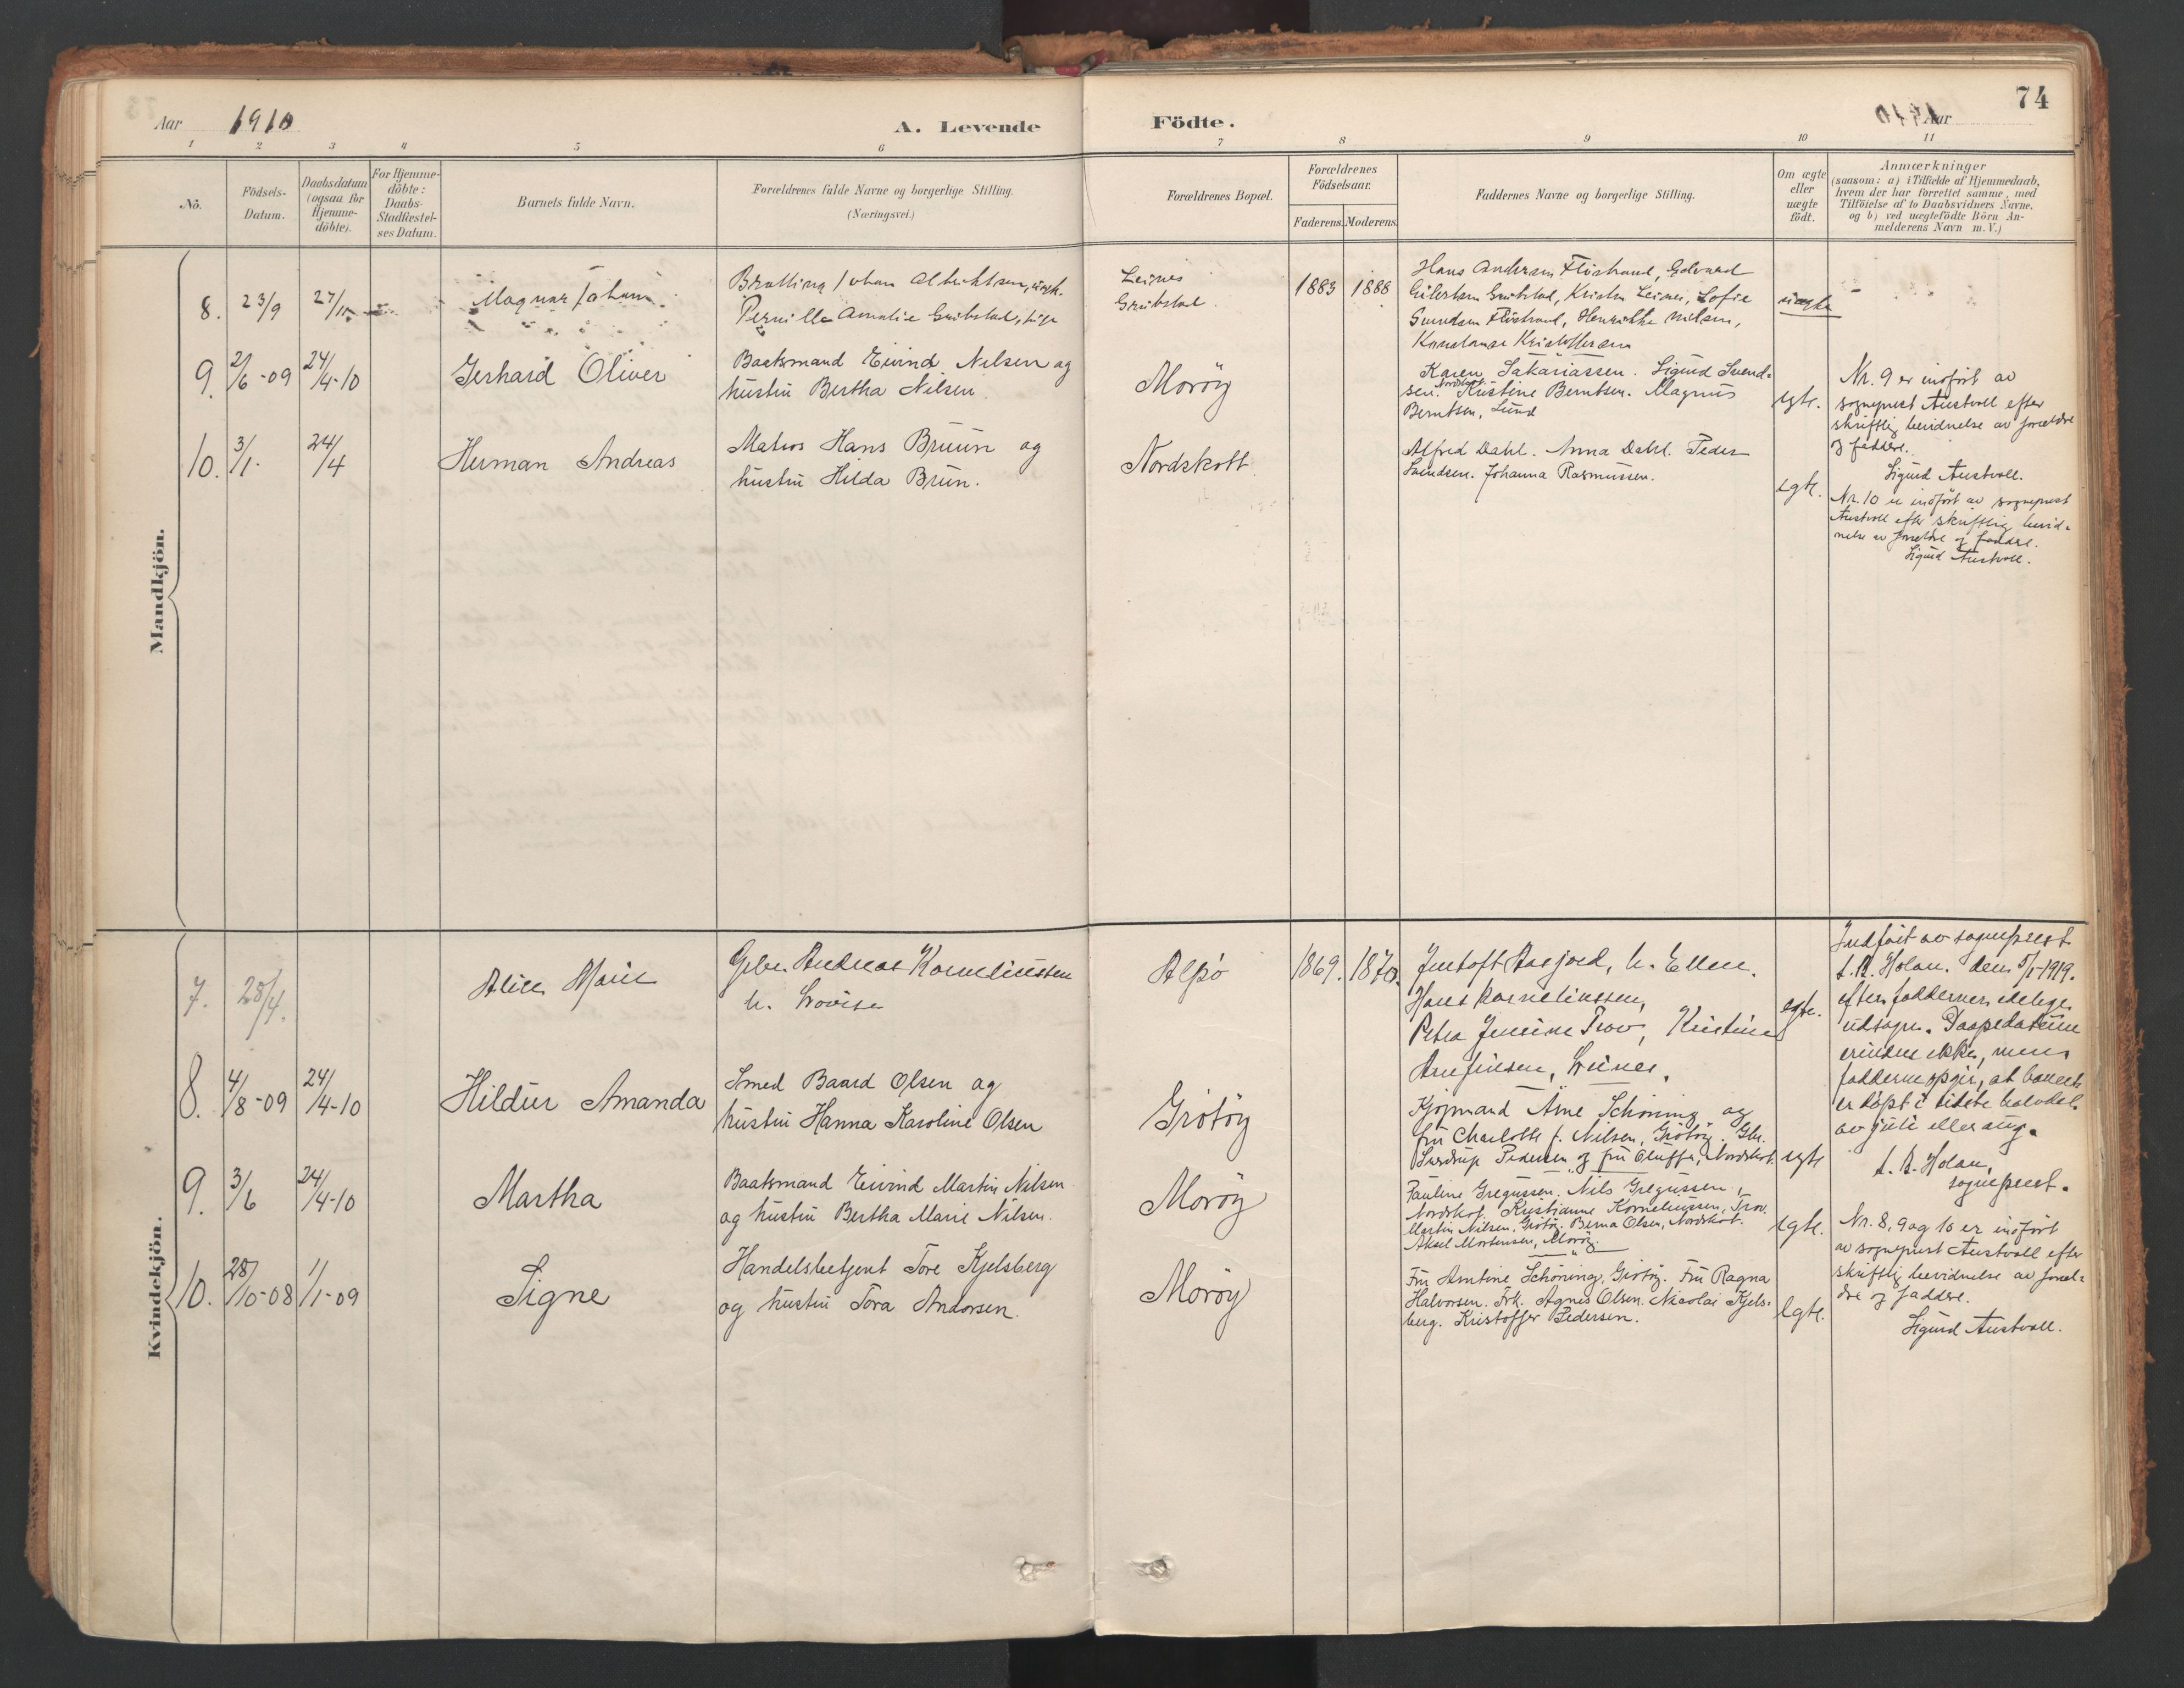 Aar 1910
A. Levende
Födte.
Aar
74
1 2 3 4 5 6 7 8 9 10 11
No.
Födsels-
Datum.
Daabsdatum
(ogsaa for
Hjemme-
döbte).
For Hjemme-
döbte:
Daabs-
Stadfæstel-
ses Datum.
Barnets fulde Navn.
Forældrenes fulde Navne og borgerlige Stilling.
(Næringsvei.)
Forældrenes Bopæl.
Forældrenes
Födselsaar.
Faderens. Moderens.
Faddernes Navne og borgerlige Stilling.
Om ægte
eller
uægte
födt.
Anmærkninger
(saasom: a) i Tilfælde af Hjemmedaab,
hvem der har forrettet samme, med
Tilföielse af to Daabsvidners Navne.
og b) ved uægtefödte Börn An-
melderens Navn m. V.)
Mandkjön.
8. 23/9 27/11
Magnar Johan
Johan Albriktsen,
Pernille Amalie Gribstad,
Leines
Gribstad.
1883 1888
Hans Andersen Flöistrand, Edvard
Eilertsen Gribstad, Kristen Leines, Sofie
Flöistrand, Henrikke Nilsen,
Konstanse Kristoffersen
uægte
9. 2/6-09 24/4-10
Gerhard Oliver
Baatsmand Eivind Nilsen og
hustru Bertha Nilsen.
Moröy
Karen Sakariassen. Sigurd Svend-
sen. Nordskot. Kristine Berntsen. Magnus
Berntsen, Lund
egte.
Nr. 9 er indfört av
sogneprest Austvoll efter
skriftlig bevidnelse av forældre
og faddere.
Sigurd Austvoll.
10. 3/1. 24/4
Herman Andreas
Matros Hans Bruun og
hustru Hilda Brun.
Nordskott
Alfred Dahl. Anna Dahl. Peder
Svendsen. Johanna Rasmussen.
egte.
Nr. 10 er indfört av sogneprest
Austvoll efter skriftlig bevid-
nelse av forældre og faddere.
Sigurd Austvoll.
Kvindekjön.
7. 28/4.
Alice Marie
Gbr. Andreas Korneliussen
h. Lovise
Alpö
1869. 1870.
Jentoft Aasjord, h. Ellen.
Hans Korneliussen,
Petra Jensine Trov, Kristine
Arnfinsen, Leines.
egte.
Indfört av sogneprest
A. Holan. den 5/1-1919.
efter faddernes edelige
utsagn. Daapsdatum
erindres ikke, men
fadderne opgir, at barnet
er döpt i sidste halvdel
av juli eller aug.
A. Holan,
sogneprest.
8. 4/8-09 24/4-10
Hildur Amanda
Smed Baard Olsen og
hustru Hanna Karoline Olsen
Grötöy
Kjöpmand Arne Schöning og
fru Charlotte f. Nilsen, Grötöy. Gbr.
Sverdrup Pedersen og fru Oluffa, Nordskot.
egte
9. 3/6 24/4-10
Martha
Baatsmand Eivind Martin Nilsen
og hustru Bertha Marie Nilsen.
Moröy
Pauline Gregussen. Nils Gregussen,
Nordskot. Kristianne Korneliussen, Trov.
Martin Nilsen, Grötöy. Berna Olsen, Nordskot.
Aksel Mortensen, Moröy.
egte.
Nr. 8, 9 og 10 er indfört
av sogneprest Austvoll efter
skriftlig bevidnelse av foræl-
dre og faddere.
Sigurd Austvoll.
10. 28/10-08 1/1-09
Signe
Handelsbetjent Tore Kjelsberg
og hustru Tora Andorsen.
Moröy
Fru Arntine Schöning, Grötöy. Fru Ragna
Halvorsen. Frk. Agnes Olsen. Nicolai Kjels-
berg. Kristoffer Pedersen.
egte.